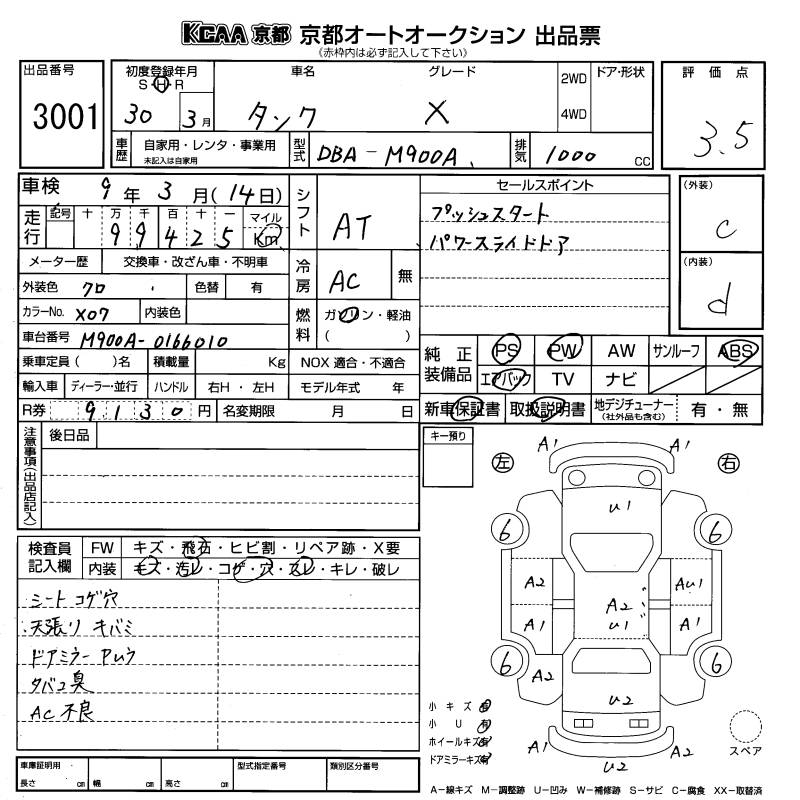 KCAA 京都 京都オートオークション 出品票
(赤枠内は必ず記入して下さい)
出品番号 3001
初度登録年月 S・H・R 30 3月
車名 タンク
グレード X
2WD 4WD
ドア・形状
評価点 3.5
車歴 自家用・レンタ・事業用 未記入は自家用
型式 DBA-M900A
排気 1000 CC
車検 9年 3月(14日)
走行 記号 十 万 千 百 十 一 マイル Km
9 9 4 2 5
シフト AT
セールスポイント
プッシュスタート
パワースライドドア
(外装) C
(内装) d
メーター歴 交換車・改ざん車・不明車
冷房 AC 無
外装色 クロ 色替 有
カラーNo. X07 内装色
燃料 ガソリン・軽油 ( )
車台番号 M900A-0166010
乗車定員 ( )名 積載量 Kg NOX 適合・不適合
輸入車 ディーラー・並行 ハンドル 右H・左H モデル年式 年
R券 9130円 名変期限 月 日
純正装備品 PS PW AW サンルーフ ABS
エアバック TV ナビ
新車保証書 取扱説明書 地デジチューナー (社外品も含む) 有・無
注意事項(出品店記入) 後日品
キー預り
左 右
A1 A1
U1
6 6
A2 A2 U1 AU1
A1 A1
6 6
A2 A2
U2
A1 U2 A2
検査員記入欄 FW キズ・飛石・ヒビ割・リペア跡・X要
内装 キズ・汚レ・コゲ・穴・スレ・キレ・破レ
シート コゲ穴
天張り キバミ
ドアミラー AWU
タバコ臭
AC不良
小キズ 有
小U 有
ホイールキズ 有
ドアミラーキズ 有
スペア
車庫証明用 長さ cm 幅 cm 高さ cm 型式指定番号 類別区分番号
A-線キズ M-調整跡 U-凹み W-補修跡 S-サビ C-腐食 XX-取替済